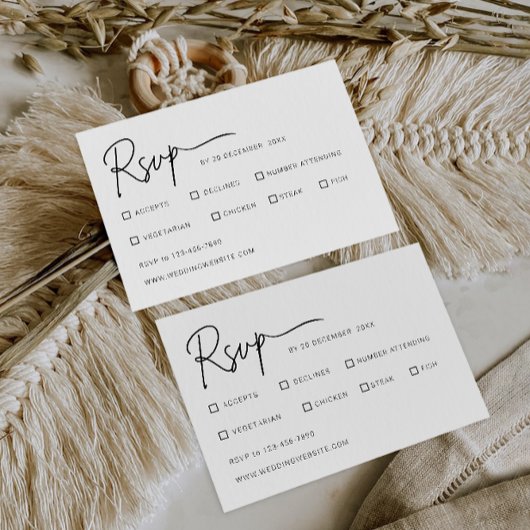 Rsvp BY 20 DECEMBER 20XX
ACCEPTS DECLINES NUMBER ATTENDING
VEGETARIAN CHICKEN STEAK FISH
RSVP to 123-456-7890
WWW.WEDDINGWEBSITE.COM
Rsvp BY 20 DECEMBER 20XX
ACCEPTS DECLINES NUMBER ATTENDING
VEGETARIAN CHICKEN STEAK FISH
RSVP to 123-456-7890
WWW.WEDDINGWEBSITE.COM